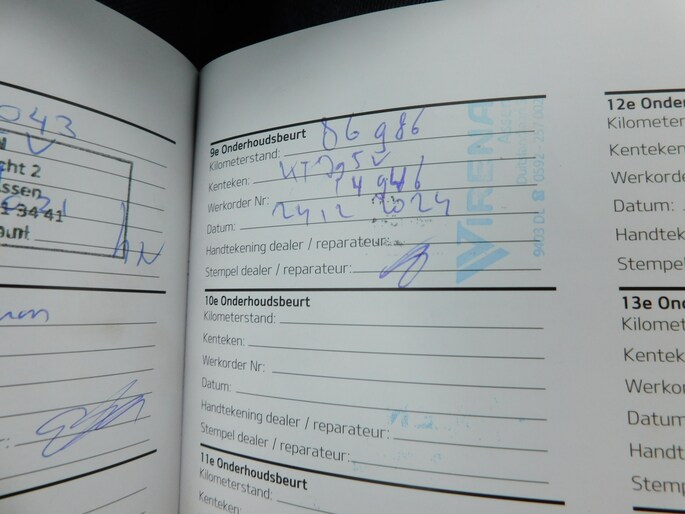 043
V
cht 2
ssen
34 41
9e Onderhoudsbeurt
Kilometerstand: 86 986
Kenteken:
Werkorder Nr: 14946
Datum: 24,12 2024
Handtekening dealer / reparateur:
Stempel dealer / reparateur:
WIRENA
9403 DL 8 0592 - 257 002
10e Onderhoudsbeurt
Kilometerstand:
Kenteken:
Werkorder Nr:
Datum:
Handtekening dealer / reparateur:
Stempel dealer / reparateur:
11e Onderhoudsbeurt
Kilometerstand:
Kenteken:
12e Onder
Kilometer
Kenteken
Werkorde
Datum:
Handteke
Stempel
13e Ond
Kilomet
Kentek
Werko
Datum
Handt
Stemp